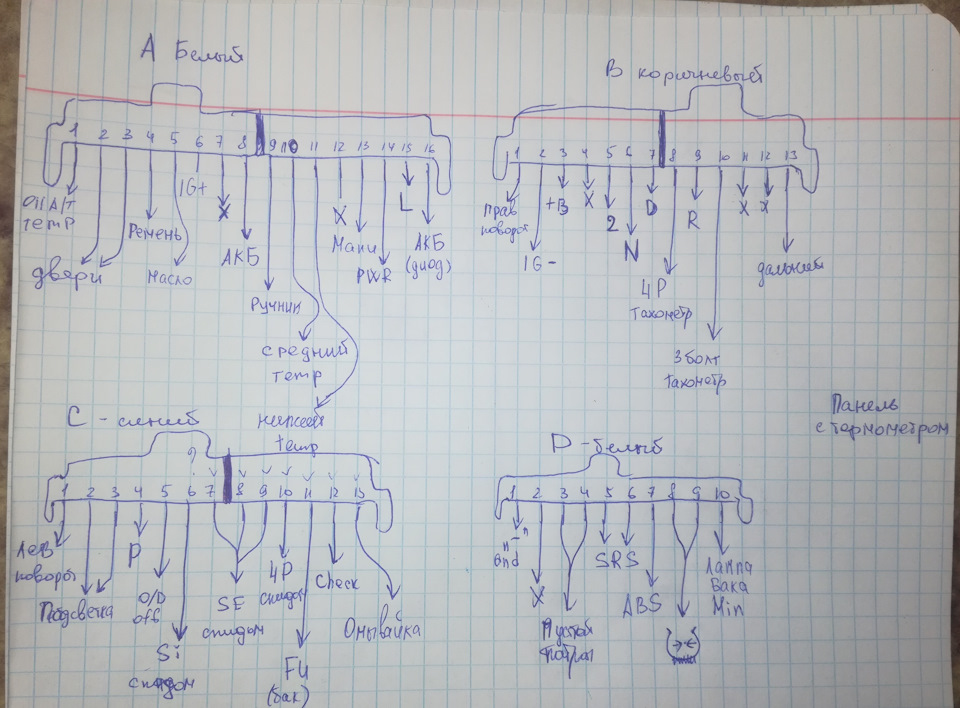 А Белый
1 2 3 4 5 6 7 8 9 10 11 12 13 14 15 16
Oil A/T
темр
двери
Ремень
масло
IG+
X
АКБ
Ручник
средний
темр
нижний
темр
X
Мани
PWR
L
АКБ
(диод)
В коричневый
1 2 3 4 5 6 7 8 9 10 11 12 13
Прав
поворот
IG-
+B
X
2
N
D
4P
тахометр
R
3 болт
тахометр
X
X
дальний
Панель
с термометром
С - синий
?
1 2 3 4 5 6 7 8 9 10 11 12 13
Лев
поворот
Подсветка
P
O/D
off
Si
спидом
SE
спидом
4P
спидом
FU
(бак)
Check
Омывайка
D - белый
1 2 3 4 5 6 7 8 9 10
"-"
gnd
X
Пустой
патрон
SRS
ABS
Лампа
Бака
Min